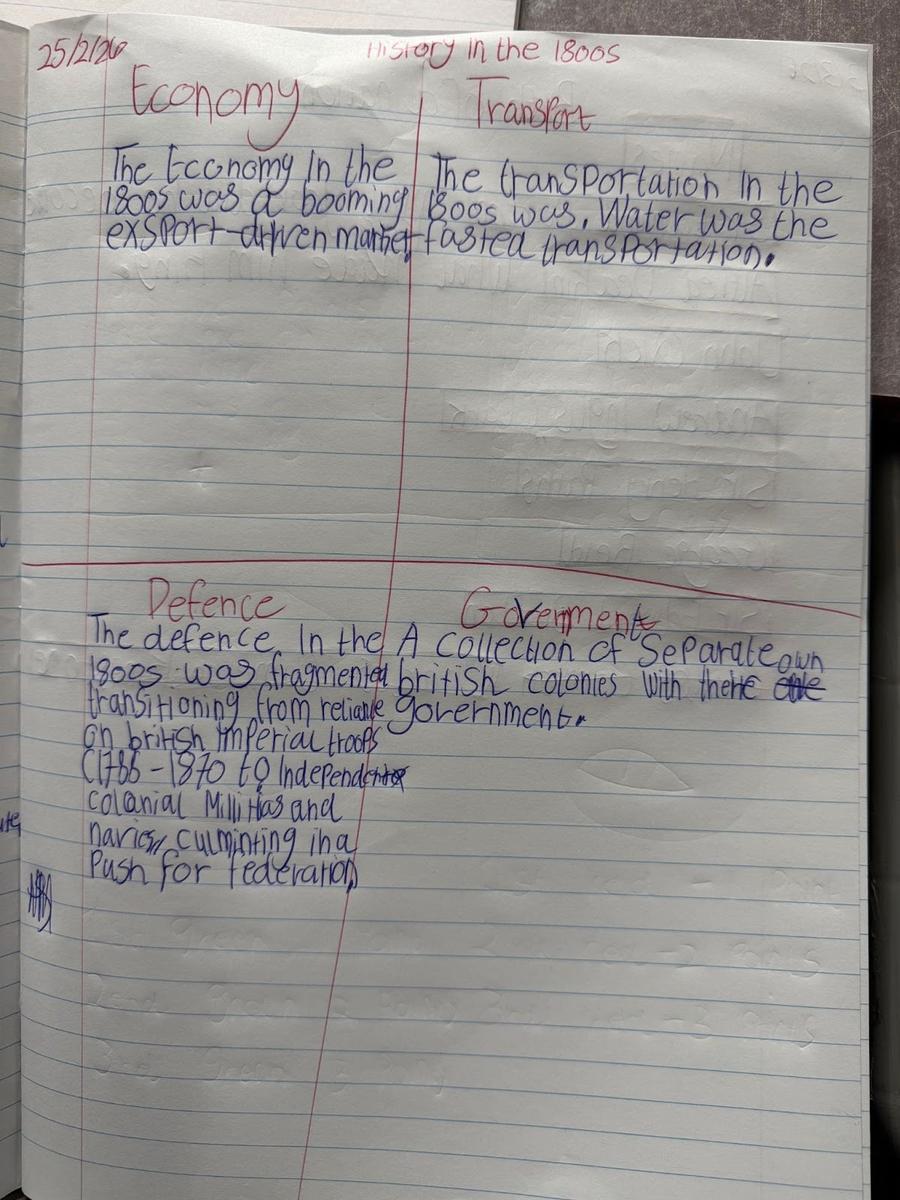 25/2/26
History in the 1800s
Economy
The Economy In the
1800s was a booming
exsport-driven market
Transport
The transportation In the
1800s was. Water was the
fasted transportation.
Defence
The defence In the
1800s was fragmented
transitioning from reliable
on british Imperial troops
(1788-1870 to Independent
colonial Millitias and
navies, culminting in a
Push for Federation
Goverment
A collection of Separate own
british colonies with there
government.